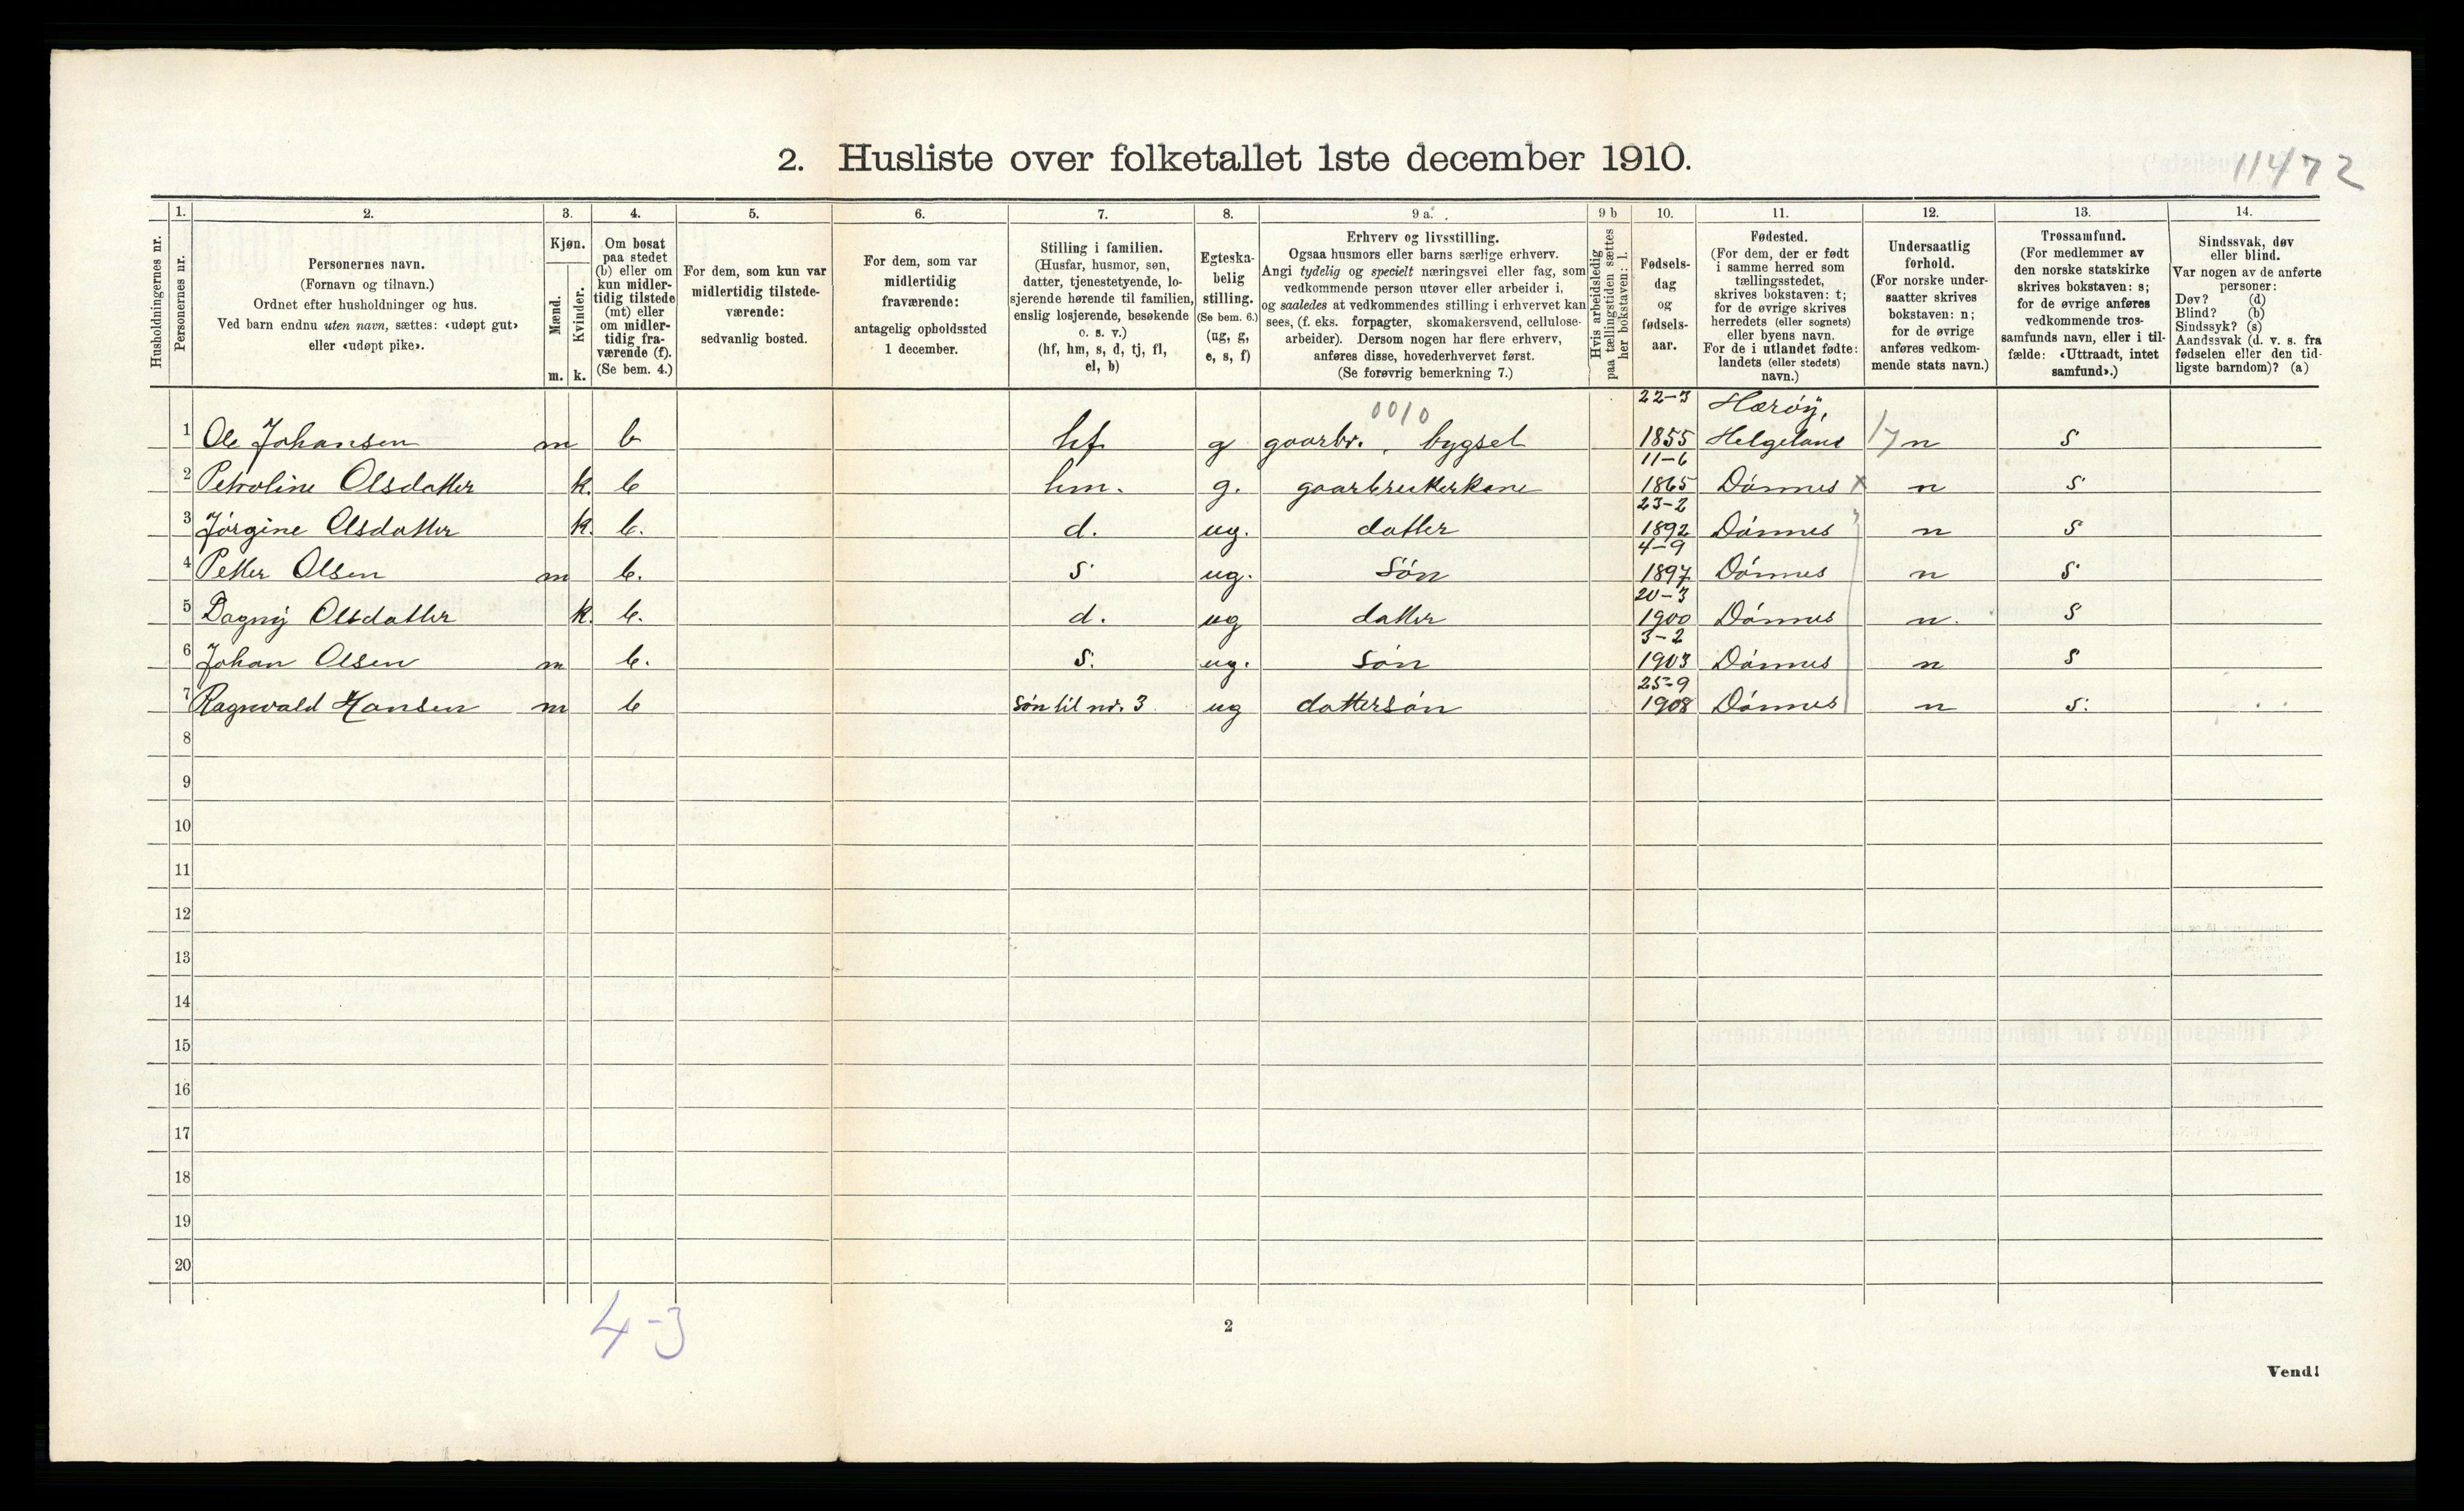 2. Husliste over folketallet 1ste december 1910.
11472
Husholdningernes nr.
1.
Personernes nr.
2.
Personernes navn.
(Fornavn og tilnavn.)
Ordnet efter husholdninger og hus.
Ved barn endnu uten navn, sættes: «udøpt gut»
eller «udøpt pike».
3.
Kjøn.
Mænd.
Kvinder.
m. k.
4.
Om bosat
paa stedet
(b) eller om
kun midler-
tidig tilstede
(mt) eller
om midler-
tidig fra-
værende (f).
(Se bem. 4.)
5.
For dem, som kun var
midlertidig tilstede-
værende:
sedvanlig bosted.
6.
For dem, som var
midlertidig
fraværende:
antagelig opholdssted
1 december.
7.
Stilling i familien.
(Husfar, husmor, søn,
datter, tjenestetyende, lo-
sjerende hørende til familien,
enslig losjerende, besøkende
o. s. v.)
(hf, hm, s, d, tj, fl,
el, b)
8.
Egteska-
belig
stilling.
(Se bem. 6.)
(ug, g,
e, s, f)
9 a.
Erhverv og livsstilling.
Ogsaa husmors eller barns særlige erhverv.
Angi tydelig og specielt næringsvei eller fag, som
vedkommende person utøver eller arbeider i,
og saaledes at vedkommendes stilling i erhvervet kan
sees, (f. eks. forpagter, skomakersvend, cellulose-
arbeider). Dersom nogen har flere erhverv,
anføres disse, hovederhvervet først.
(Se forøvrig bemerkning 7.)
9 b
Hvis arbeidsledig
paa tællingstiden sættes
her bokstaven: l.
10.
Fødsels-
dag
og
fødsels-
aar.
11.
Fødested.
(For dem, der er født
i samme herred som
tællingsstedet,
skrives bokstaven: t;
for de øvrige skrives
herredets (eller sognets)
eller byens navn.
For de i utlandet fødte:
landets (eller stedets)
navn.)
12.
Undersaatlig
forhold.
(For norske under-
saatter skrives
bokstaven: n;
for de øvrige
anføres vedkom-
mende stats navn.)
13.
Trossamfund.
(For medlemmer av
den norske statskirke
skrives bokstaven: s;
for de øvrige anføres
vedkommende tros-
samfunds navn, eller i til-
fælde: «Uttraadt, intet
samfund».)
14.
Sindssvak, døv
eller blind.
Var nogen av de anførte
personer:
Døv? (d)
Blind? (b)
Sindssyk? (s)
Aandssvak (d. v. s. fra
fødselen eller den tid-
ligste barndom)? (a)
0010 22-3 Herøÿ,
1 Ole Johansen m b hf g gaarbr., bygsel 1855 Helgeland 17 n s
11-6
2 Petroline Olsdatter k. b hm. g. gaarbrukerkone 1865 Dønnes x n s
23-2
3 Jørgine Olsdatter k. b. d. ug. datter 1892 Dønnes n s
4-9
4 Petter Olsen m b. s ug. søn 1897 Dønnes n s
20-3
5 Dagnÿ Olsdatter k. b. d. ug datter 1900 Dønnes n. s
3-2
6 Johan Olsen m b. s. ug. søn 1903 Dønnes n s
25-9
7 Ragnvald Hansen m b søn til nr. 3 ug dattersøn 1908 Dønnes n s.
8
9
10
11
12
13
14
15
16
17
18
19
20
4-3
2
Vend!